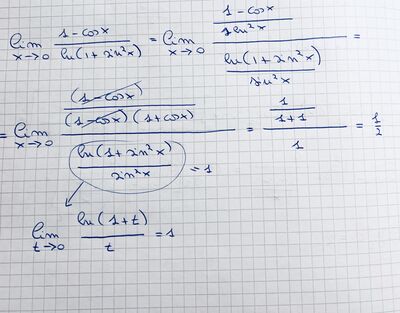 lim x→0 (1 - cos x) / (ln(1 + sin²x)) = lim x→0 ((1 - cos x) / (sin²x)) / ((ln(1 + sin²x)) / (sin²x)) =
= lim x→0 ((1 - cos x) / ((1 - cos x)(1 + cos x))) / ((ln(1 + sin²x)) / (sin²x)) = (1 / (1 + 1)) / 1 = 1/2
= 1
lim t→0 (ln(1 + t)) / t = 1